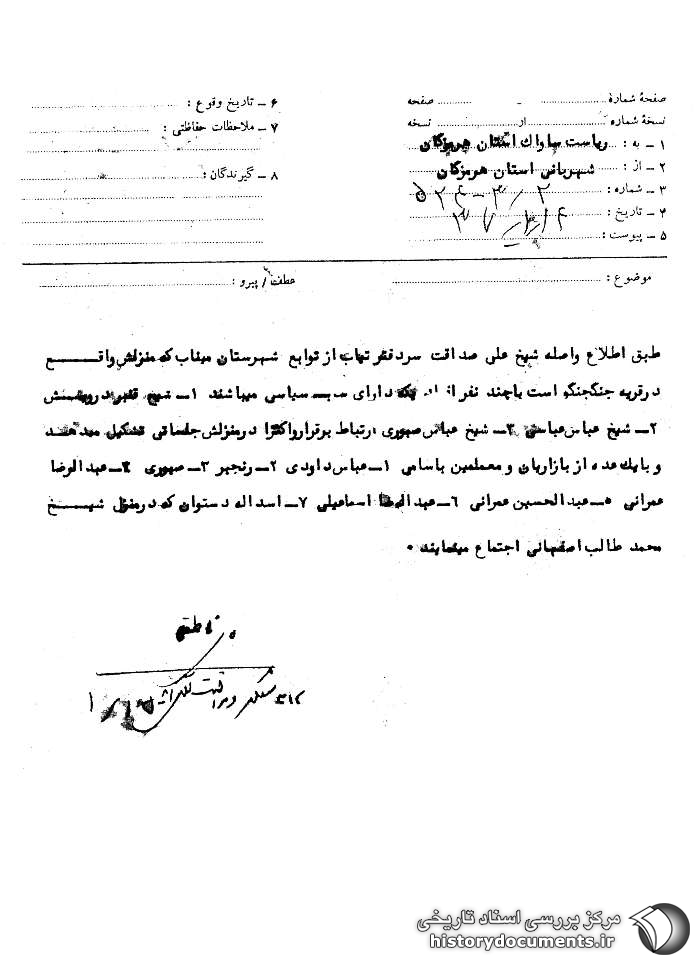 صفحهٔ شمارهٔ ـ صفحه
نسخهٔ شماره از نسخه
۱ ـ به : ریاست ساواك استان هرمزگان
۲ ـ از : شهربانی استان هرمزگان
۳ ـ شماره :
۴ ـ تاریخ :
۵ ـ پیوست :
۶ ـ تاریخ وقوع :
۷ ـ ملاحظات حفاظتی :
۸ ـ گیرندگان :
موضوع :
عطف / پیرو :
طبق اطلاع واصله شیخ علی صداقت سردفتر از توابع شهرستان میناب که منزلش واقع
درقریه است باچند نفر دارای سیاسی میباشند ۱ـ شیخ
۲ـ شیخ عباس عباسی ۳ـ شیخ عباس صبوری ارتباط برقرارواکثرا درمنزلش جلساتی تشکیل میدهد
و بایك عده از بازاریان و معلمین باسامی ۱ـ عباس داودی ۲ـ رنجبر ۳ـ صبوری ۴ـ عبدالرضا
عمرانی ۵ـ عبدالحسین عمرانی ۶ـ عبدالرضا اسماعیلی ۷ـ اسداله دستوان که درمنزل شیخ
محمد طالب اصفهانی اجتماع مینمایند ۰
مرکز بررسی اسناد تاریخی
historydocuments.ir